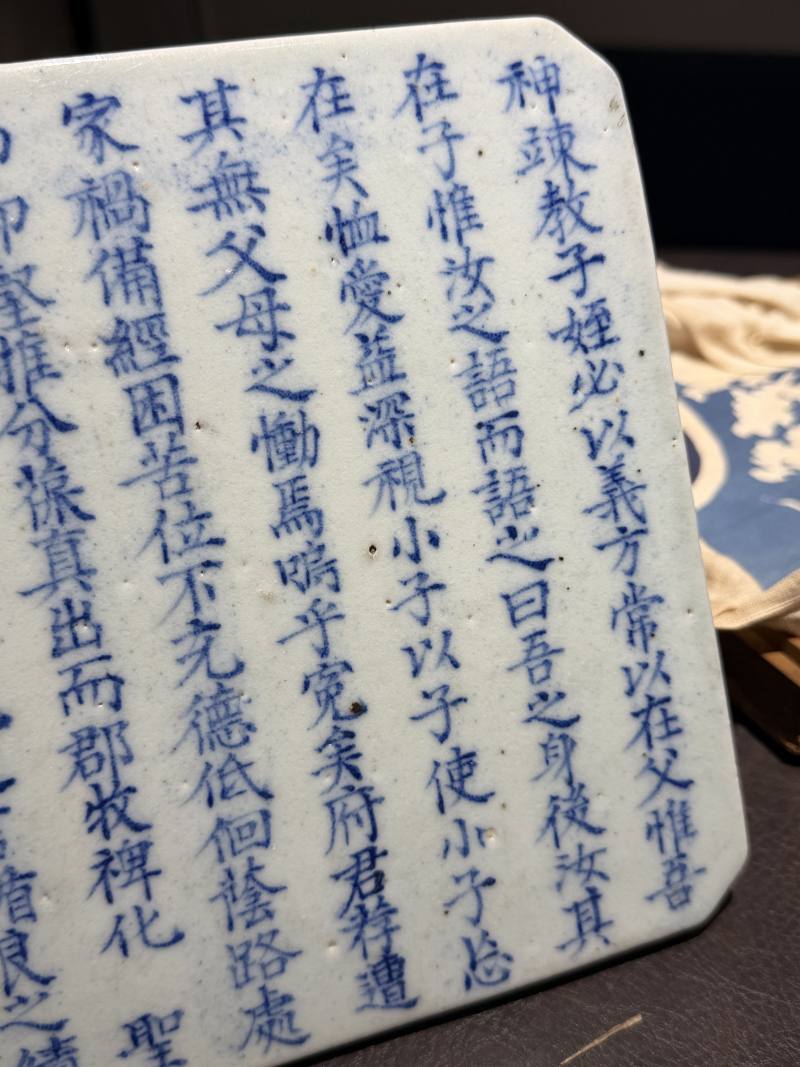 神竦教子姪必以義方常以在父惟吾
在子惟汝之語而語之曰吾之身後汝其
在矣恤愛益深視小子以子使小子忘
其無父母之慟焉嗚乎寃矣府君荐遭
家禍備經困苦位不充德低佪蔭路處
堅推分葆真出而郡牧裨化 聖
良之績